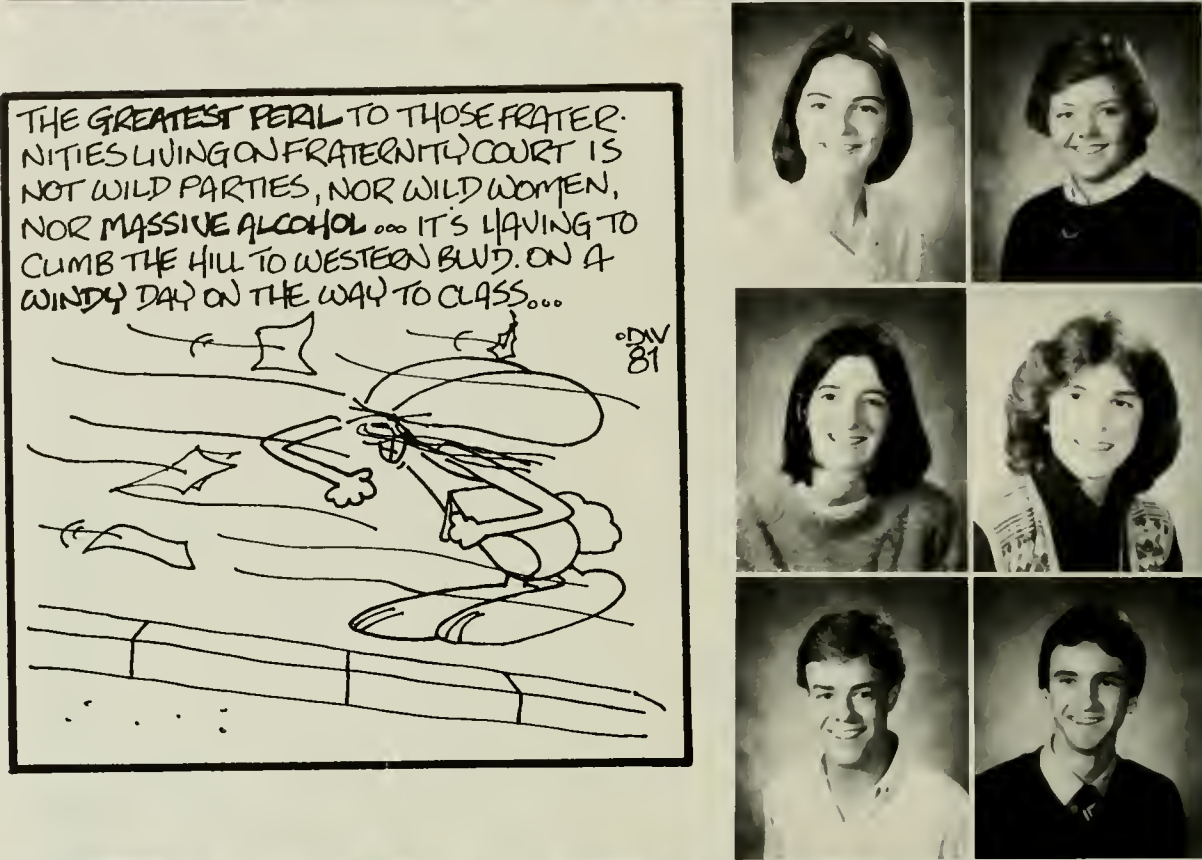 THE GREATEST PERIL TO THOSE FRATER-
NITIES LIVING ON FRATERNITY COURT IS
NOT WILD PARTIES, NOR WILD WOMEN,
NOR MASSIVE ALCOHOL... IT'S HAVING TO
CLIMB THE HILL TO WESTERN BLVD. ON A
WINDY DAY ON THE WAY TO CLASS...
DIV
81